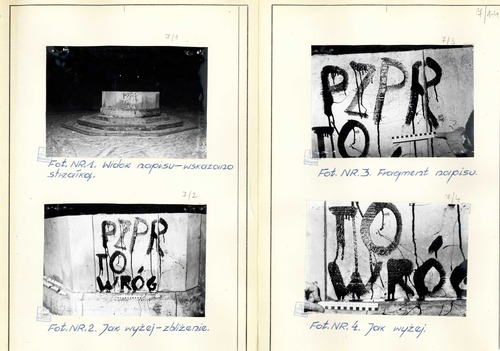 7/1-4
7/1
Fot. NR. 1. Widok napisu – wskazano
strzałką.
7/2
PZPR
TO
WRÓG
Fot. NR. 2. Jak wyżej – zbliżenie.
7/3
PZPR
TO
Fot. NR. 3. Fragment napisu.
7/4
TO
WRÓG
Fot. NR. 4. Jak wyżej.